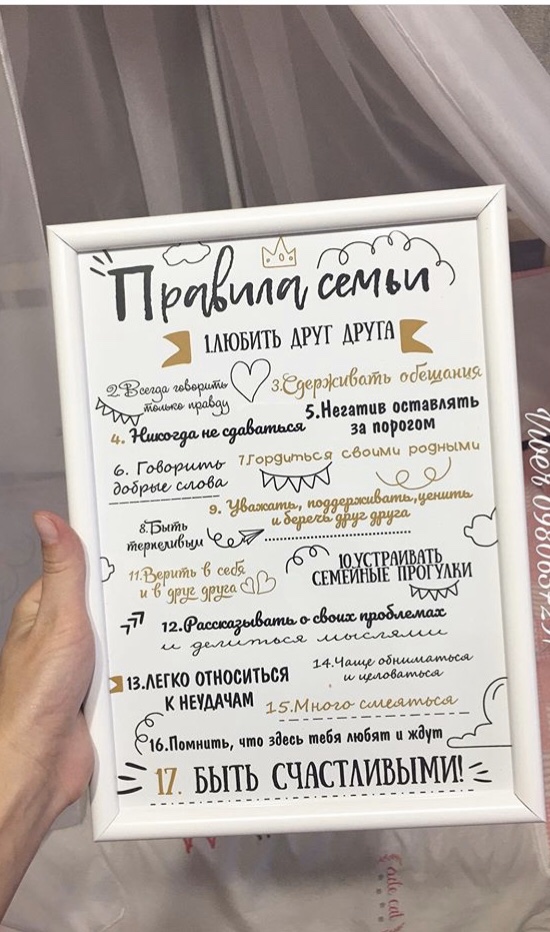 Правила семьи
1.ЛЮБИТЬ ДРУГ ДРУГА
2.Всегда говорить
только правду
3.Сдерживать обещания
4. Никогда не сдаваться
5.Негатив оставлять
за порогом
6. Говорить
добрые слова
7.Гордиться своими родными
8.Быть
терпеливым
9. Уважать, поддерживать,ценить
и беречь друг друга
10.УСТРАИВАТЬ
СЕМЕЙНЫЕ ПРОГУЛКИ
11.Верить в себя
и в друг друга
12.Рассказывать о своих проблемах
и делиться мыслями
13.ЛЕГКО ОТНОСИТЬСЯ
К НЕУДАЧАМ
14.Чаще обниматься
и целоваться
15.Много смеяться
16.Помнить, что здесь тебя любят и ждут
17. БЫТЬ СЧАСТЛИВЫМИ!
Viber
cat